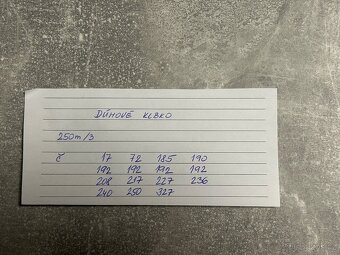 DÚHOVÉ KLBKO
250m/3
č 17 72 185 190
192 192 192 192
208 217 227 236
240 250 327